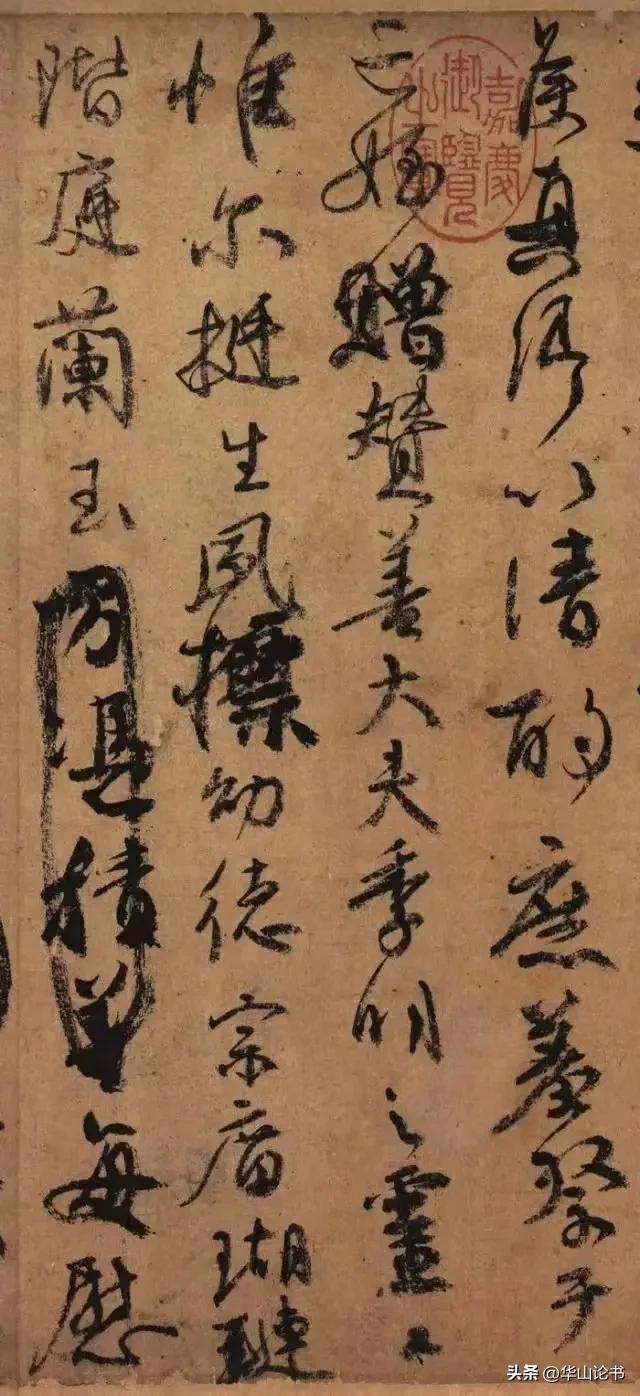 侯真卿以清酌庶羞祭于
亡姪贈贊善大夫季明之靈曰
惟尔挺生夙標幼德宗廟瑚璉
階庭蘭玉方憑積善每慰
嘉慶御覽之寶
头条 @华山论书